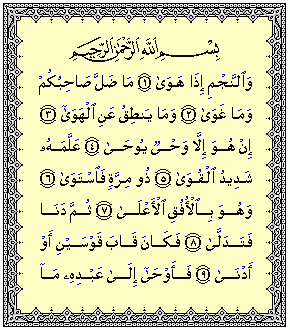 بِسْمِ ٱللَّهِ ٱلرَّحْمَٰنِ ٱلرَّحِيمِ
وَٱلنَّجْمِ إِذَا هَوَىٰ ١ مَا ضَلَّ صَاحِبُكُمْ
وَمَا غَوَىٰ ٢ وَمَا يَنطِقُ عَنِ ٱلْهَوَىٰٓ ٣
إِنْ هُوَ إِلَّا وَحْىٌ يُوحَىٰ ٤ عَلَّمَهُۥ
شَدِيدُ ٱلْقُوَىٰ ٥ ذُو مِرَّةٍ فَٱسْتَوَىٰ ٦
وَهُوَ بِٱلْأُفُقِ ٱلْأَعْلَىٰ ٧ ثُمَّ دَنَا
فَتَدَلَّىٰ ٨ فَكَانَ قَابَ قَوْسَيْنِ أَوْ
أَدْنَىٰ ٩ فَأَوْحَىٰٓ إِلَىٰ عَبْدِهِۦ مَآ